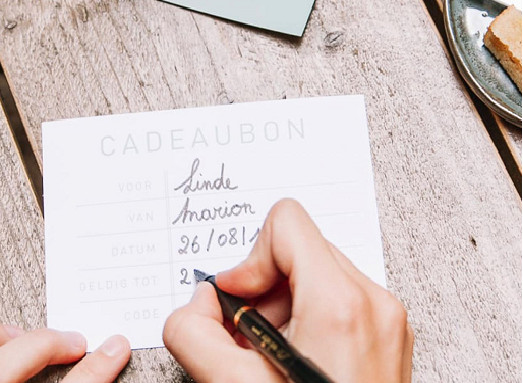 CADEAUBON
VOOR Linde
VAN Marion
DATUM 26/08/1
GELDIG TOT 2
CODE